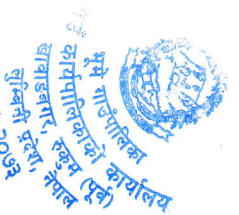 भूमे गाउँपालिका
कार्यपालिकाको कार्यालय
खाबाङबगर, रुकुम (पूर्व)
लुम्बिनी प्रदेश, नेपाल
२०७३